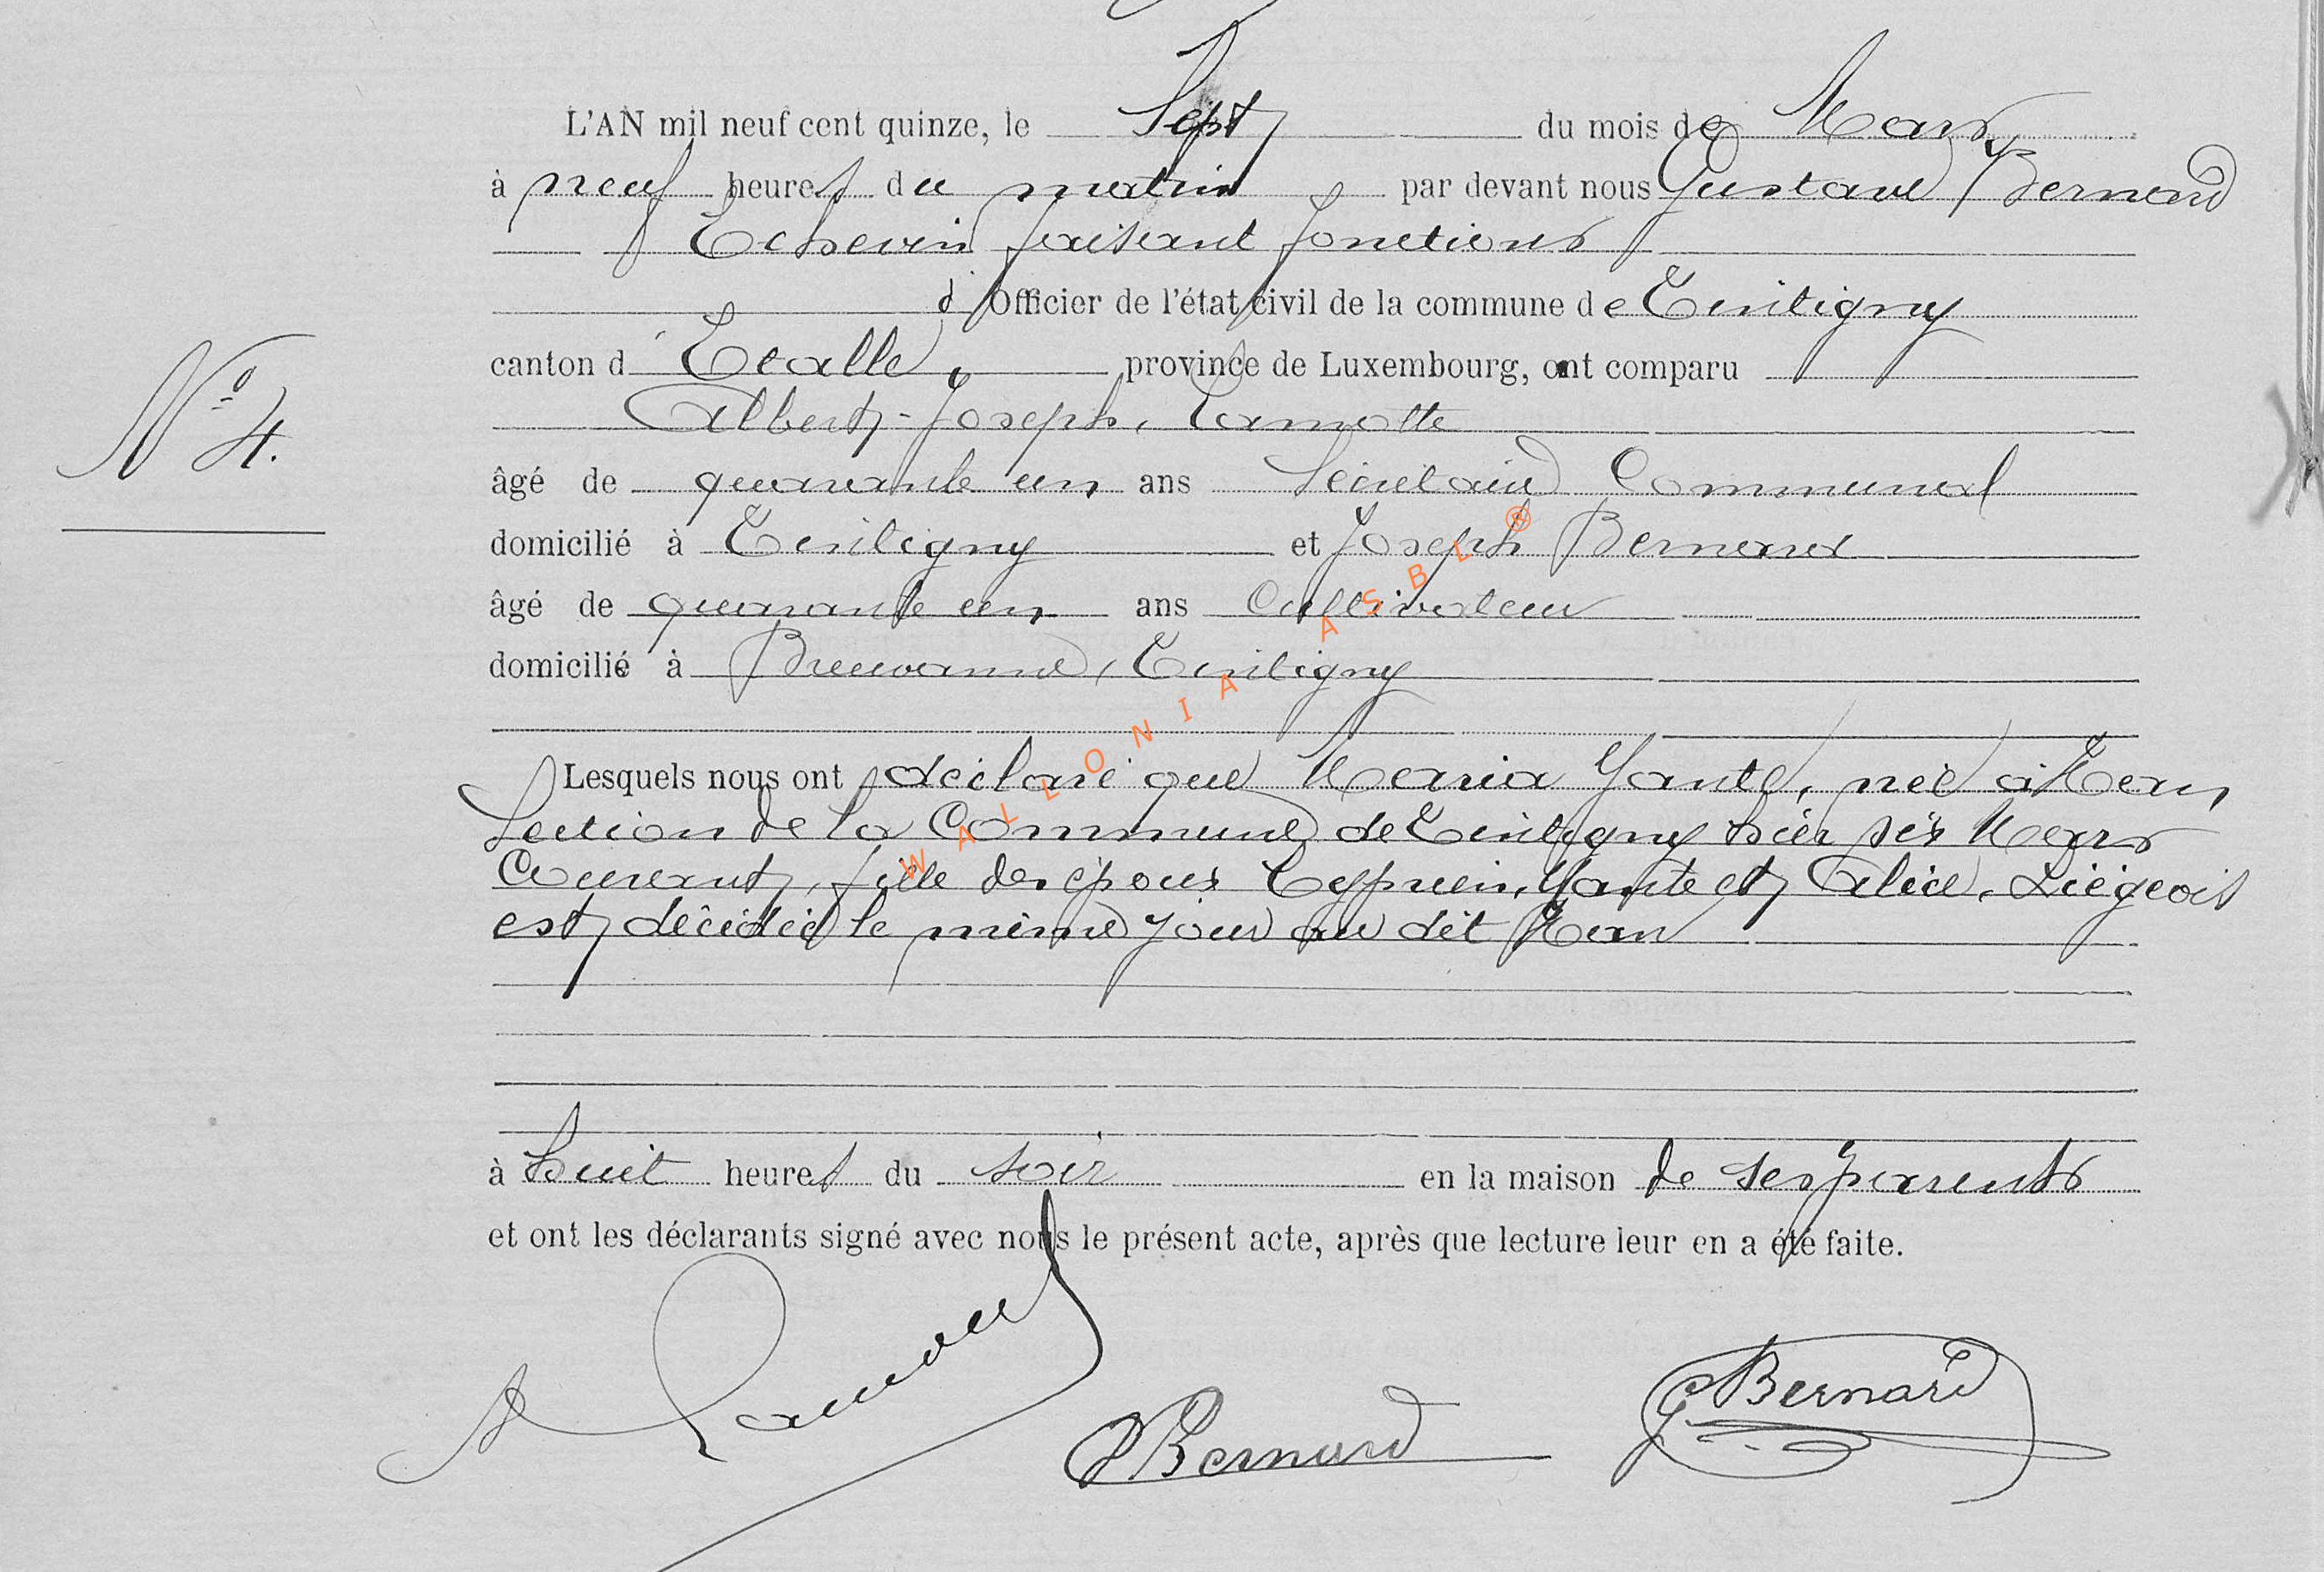 L'AN mil neuf cent quinze, le Sept du mois de Mars
à neuf heures du matin par devant nous Gustave Bernard
Echevin faisant fonctions
d' Officier de l'état civil de la commune de Tintigny
canton d' Etalle, province de Luxembourg, ont comparu
Albert-Joseph, Lamotte
N° 4.
âgé de quarante un ans Secrétaire Communal
domicilié à Tintigny et Joseph Bernard
âgé de quarante un ans Cultivateur
domicilié à Breuvanne, Tintigny
Lesquels nous ont déclaré que Maria Yante, née à Han,
Section de la Commune de Tintigny hier six Mars
Courant, fille des époux Cyprien, Yante et Alice, Liégeois
est décédée le même jour au dit Han
à huit heures du soir en la maison de ses parents
et ont les déclarants signé avec nous le présent acte, après que lecture leur en a été faite.
A Lamotte
Bernard
G Bernard
WALLONIA ASBL ®